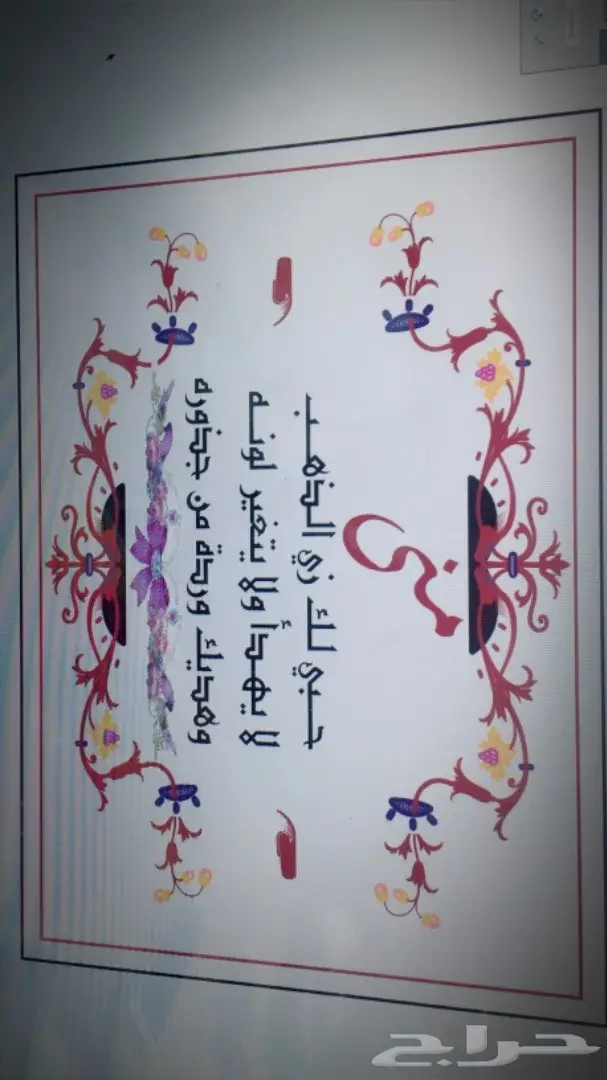 منى
حبي لك زي الذهب
لا يهدأ ولا يتغير لونه
وهديك وردة من جذوره
حراج